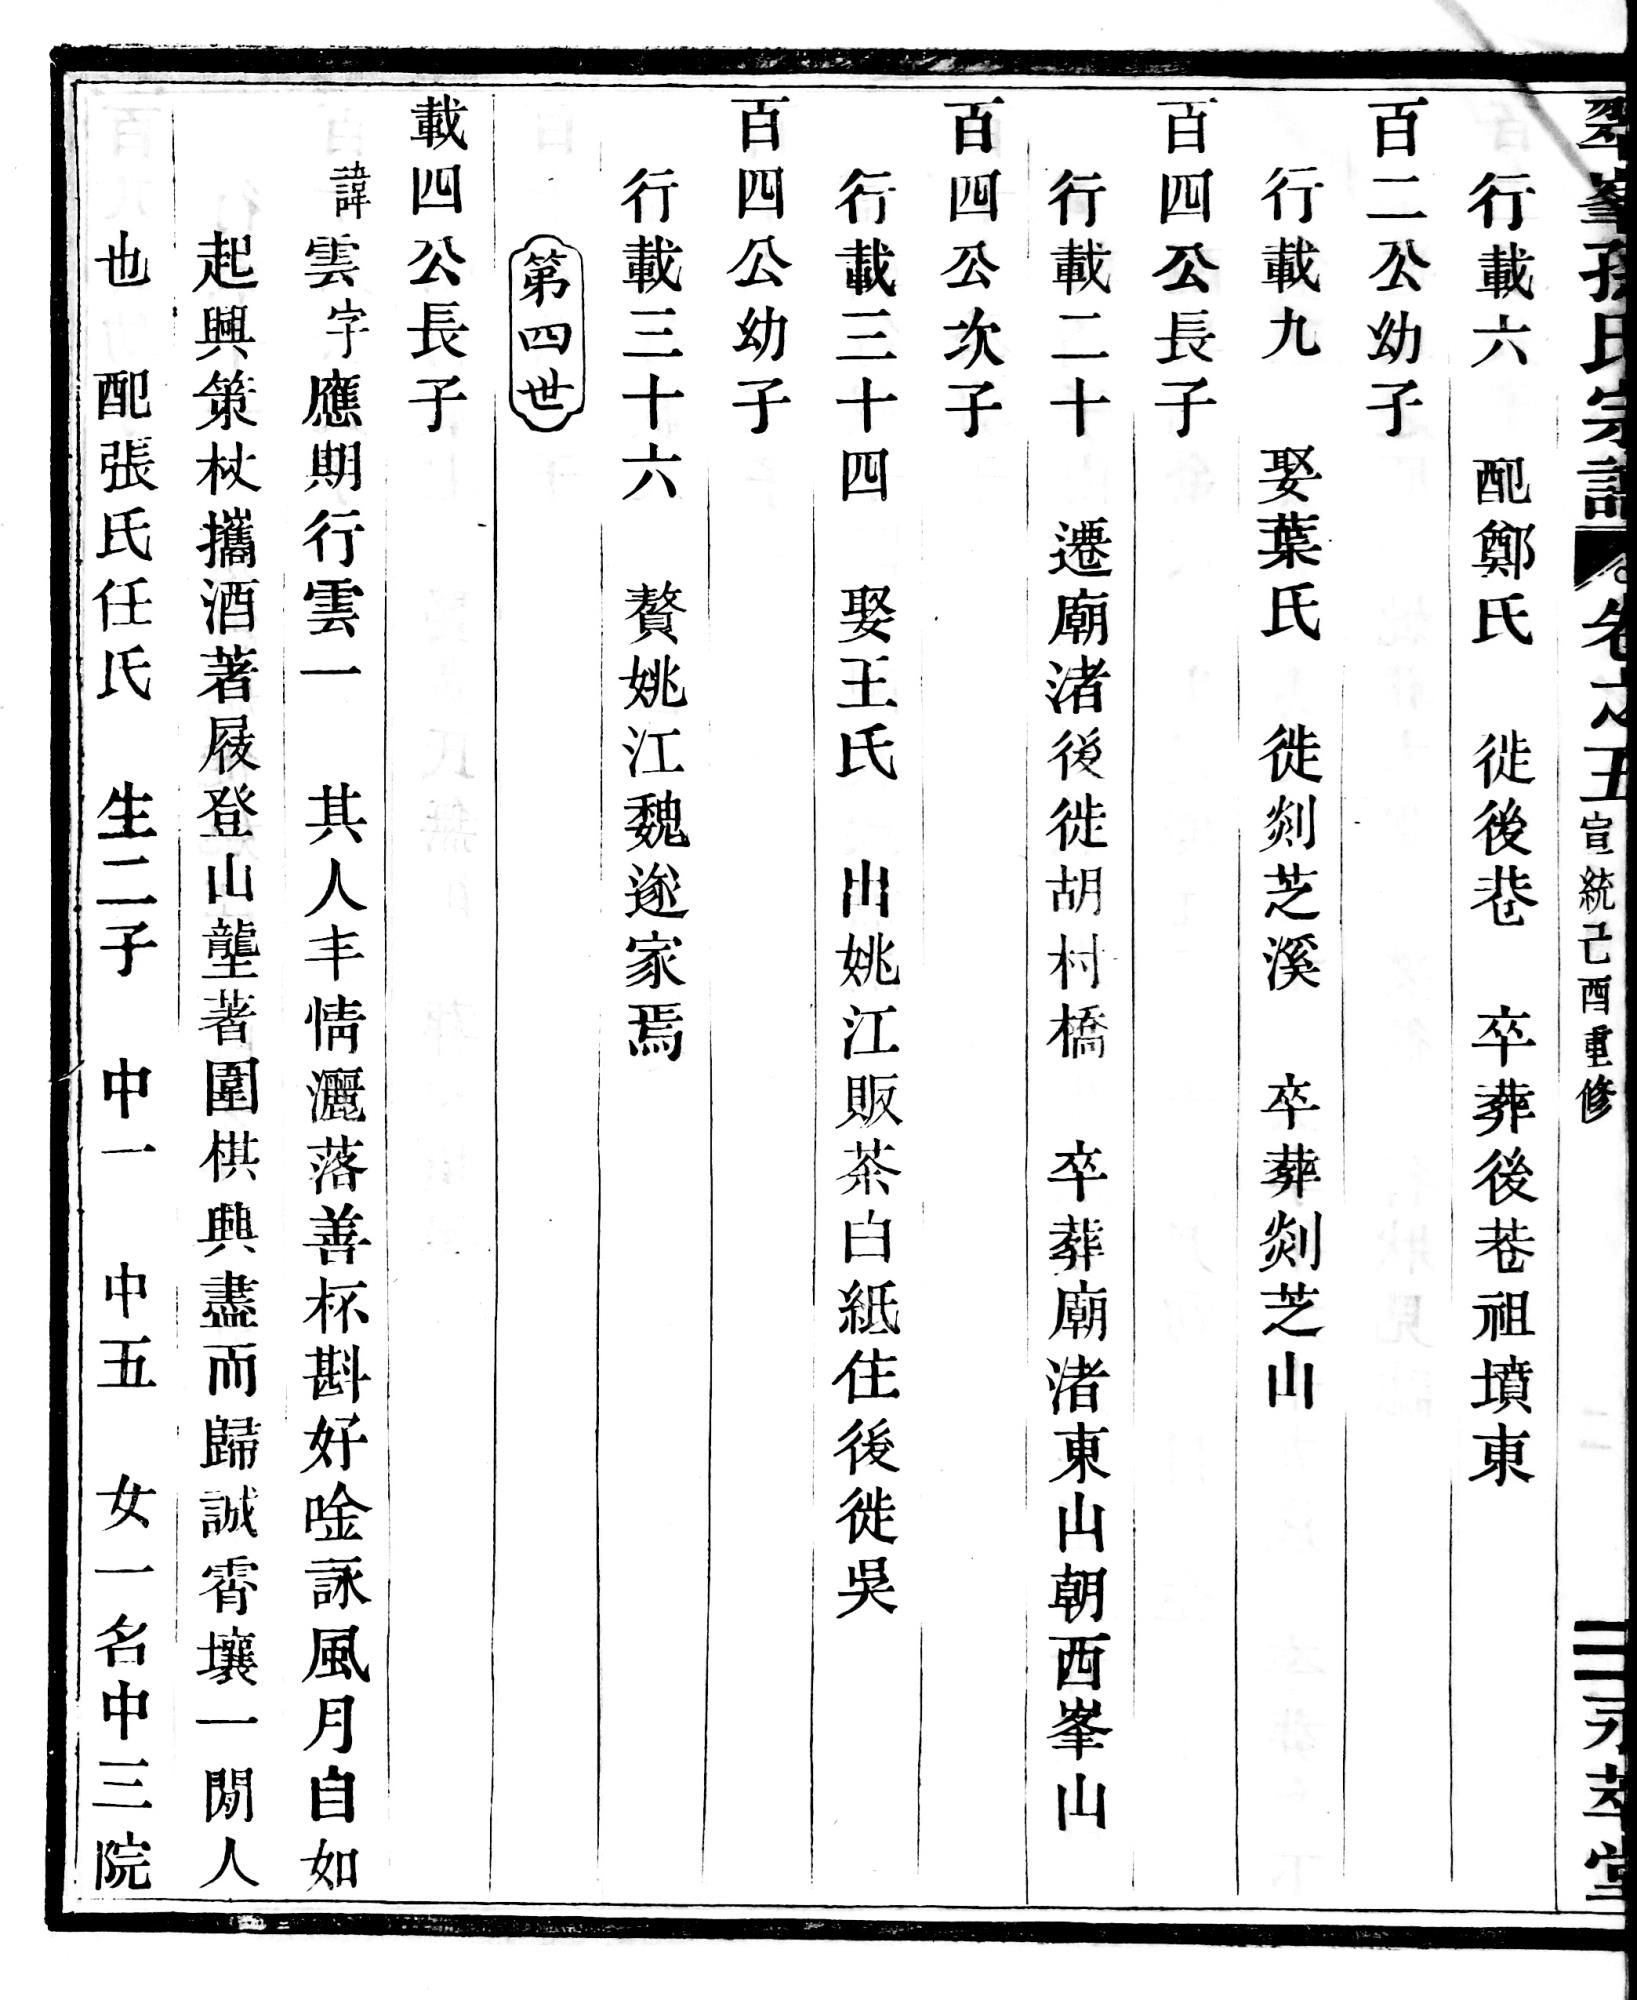 翠峯孫氏宗譜 卷之五 宣統己酉重修 二 永萃堂
行載六 配鄭氏 徙後巷 卒葬後巷祖墳東
百二公幼子
行載九 娶葉氏 徙剡芝溪 卒葬剡芝山
百四公長子
行載二十 遷廟渚後徙胡村橋 卒葬廟渚東山朝西峯山
百四公次子
行載三十四 娶王氏 出姚江販茶白紙住後徙吳
百四公幼子
行載三十六 贅姚江魏遂家焉
第四世
載四公長子
諱雲字應期行雲一 其人丰情灑落善杯斟好唫詠風月自如
起興策杖攜酒著屐登山壟著圍棋興盡而歸誠霄壤一閒人
也 配張氏任氏 生二子 中一 中五 女一名中三院